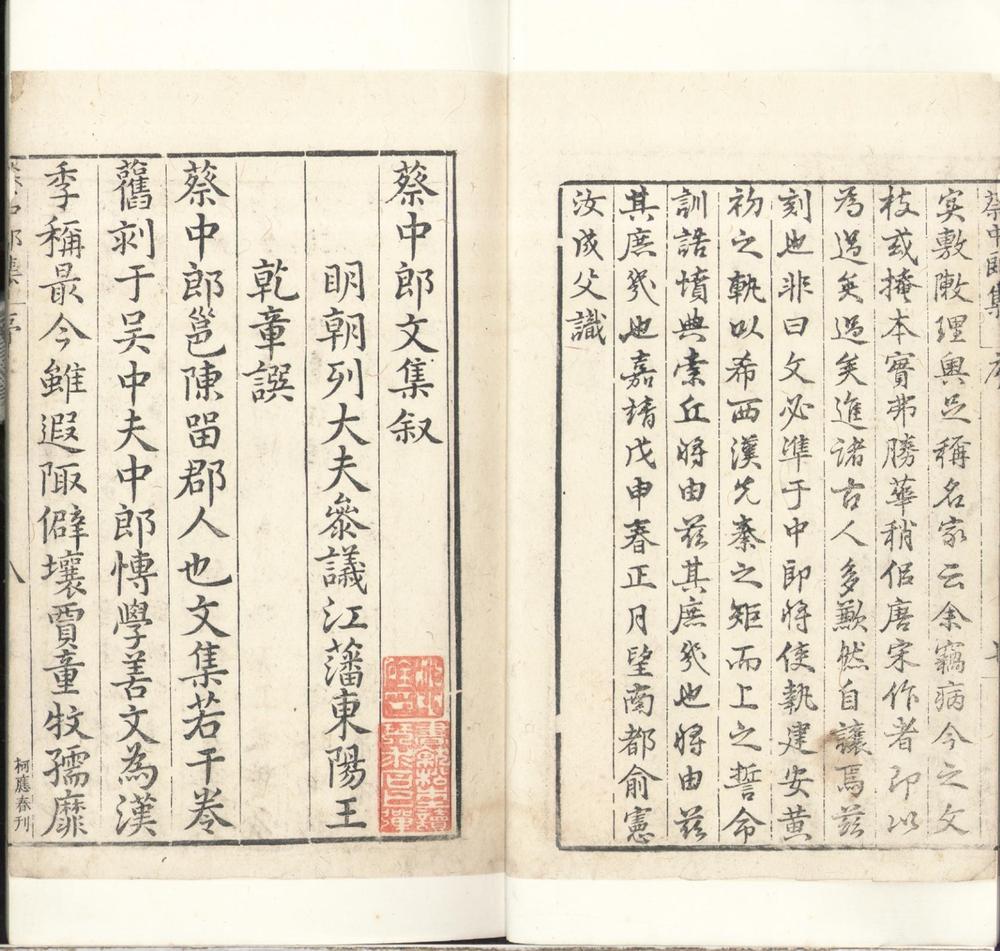 蔡中郎集
実敷敶理輿足稱名家云余竊病今之文
枝或掩本實弗勝華稍侣唐宋作者即以
為過矣過矣進諸古人多歉然自讓焉兹
刻也非曰文必準于中郎將使執建安黄
初之軌以希西漢先秦之矩而上之誓命
訓誥憤典索丘將由兹其庶幾也將由兹
其庶幾也嘉靖戊申春正月望南都俞憲
汝成父識
蔡中郎文集叙
明朝列大夫叅議江藩東陽王
乾章譔
蔡中郎邕陳畱郡人也文集若干卷
舊刻于吴中夫中郎愽學善文為漢
季稱最今雖遐陬僻壤賈童牧孺靡
柯應春刊